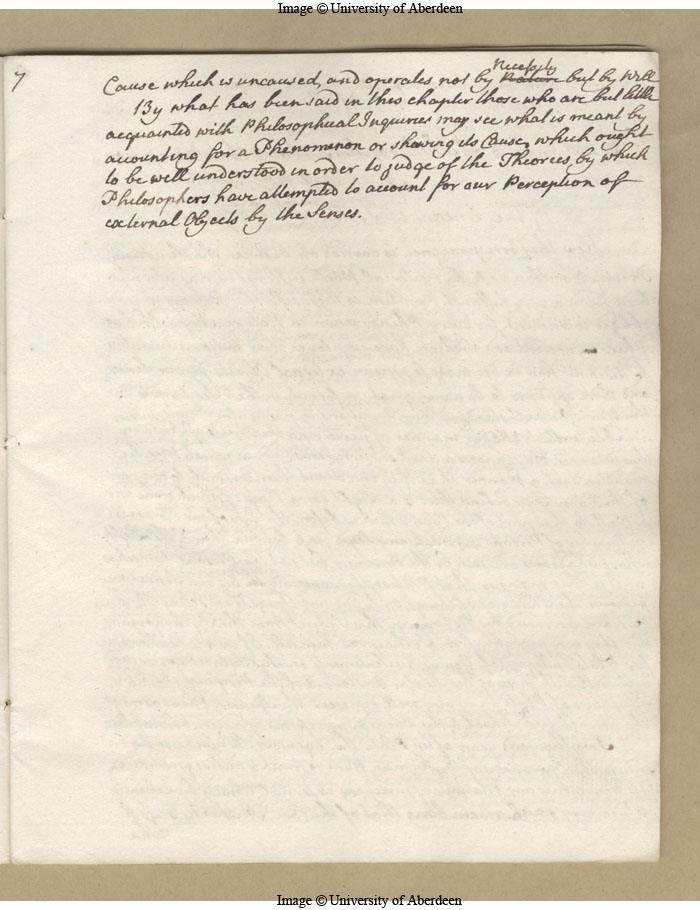 Image © University of Aberdeen
7
Necessity
Cause which is uncaused, and operates not by Nature but by Will
By what has been said in this chapter those who are but little
acquainted with Philosophical Inquiries may see what is meant by
accounting for a Phenomenon or shewing its Cause, which ought
to be well understood in order to judge of the Theories, by which
Philosophers have attempted to account for our Perception of
external Objects by the Senses.
Image © University of Aberdeen